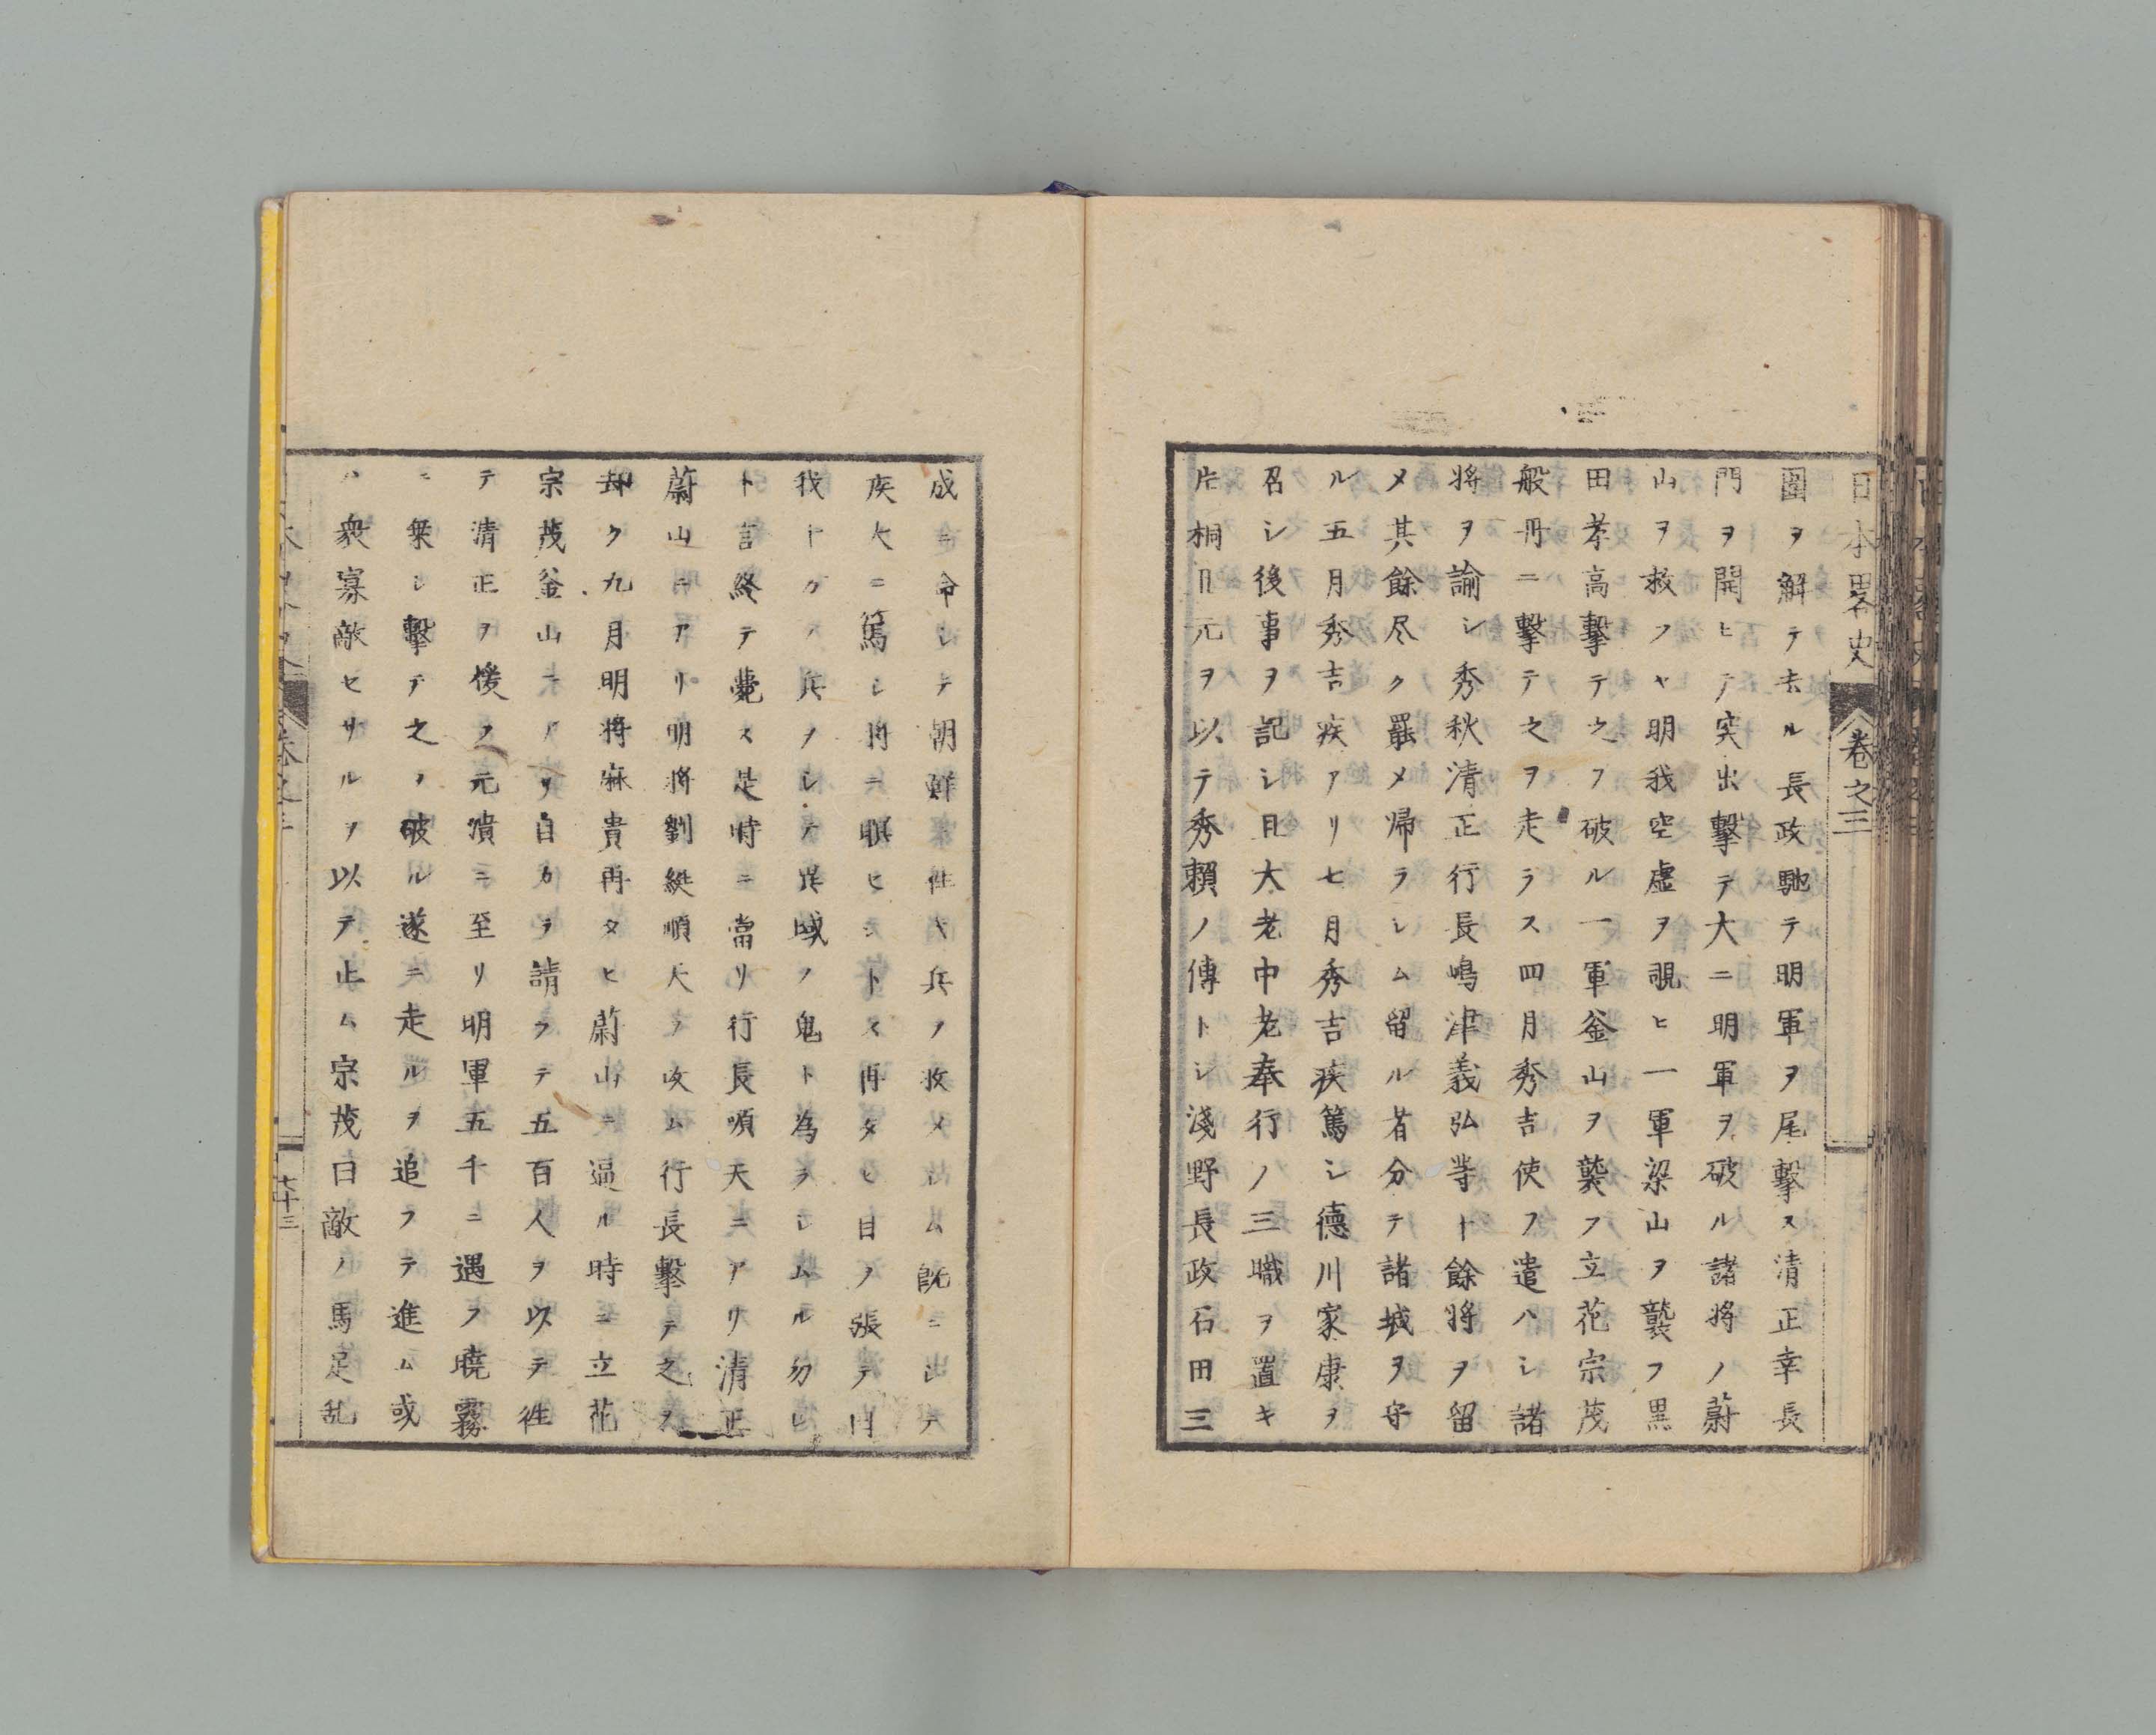 日本畧史 卷之三
圍ヲ解テ去ル長政馳テ明軍ヲ尾擊ス清正幸長
門ヲ開ヒテ突出擊テ大ニ明軍ヲ破ル諸將ノ蔚
山ヲ救フヤ明我空虛ヲ覗ヒ一軍梁山ヲ襲フ黒
田孝高擊テ之ヲ破ル一軍釜山ヲ襲フ立花宗茂
般丹ニ擊テ之ヲ走ラス四月秀吉使ヲ遣ハシ諸
將ヲ諭シ秀秋清正行長嶋津義弘等ト餘將ヲ留
メ其餘尽ク罷メ帰ラシム留ル者分テ諸城ヲ守
ル五月秀吉疾アリ七月秀吉疾篤シ德川家康ヲ
召シ後事ヲ記シ且大老中老奉行ノ三職ヲ置キ
片桐且元ヲ以テ秀賴ノ傳トシ淺野長政石田三
成ニ命シテ朝鮮ニ徃キ兵ヲ收メシム既ニシテ
疾大ニ篤シ將ニ瞑ヒントス再タヒ目ヲ張テ曰
我十万ノ兵ヲシテ異域ノ鬼ト為ラシムル勿レ
ト言終テ薨ス是時ニ當リ行長順天ニアリ清正
蔚山ニアリ明將劉綎順天ヲ攻ム行長擊テ之ヲ
却ク九月明將麻貴再タヒ蔚山ニ逼ル時ニ立花
宗茂釜山ニアリ自カラ請フテ五百人ヲ以テ徃
テ清正ヲ援フ元濆ニ至リ明軍五千ニ遇フ曉霧
ニ乗シ擊テ之ヲ破ル遂ニ走ルヲ追フテ進ム或
ハ衆寡敵セサルヲ以テ止ム宗茂曰敵ノ馬足乱
卷之三 七十三